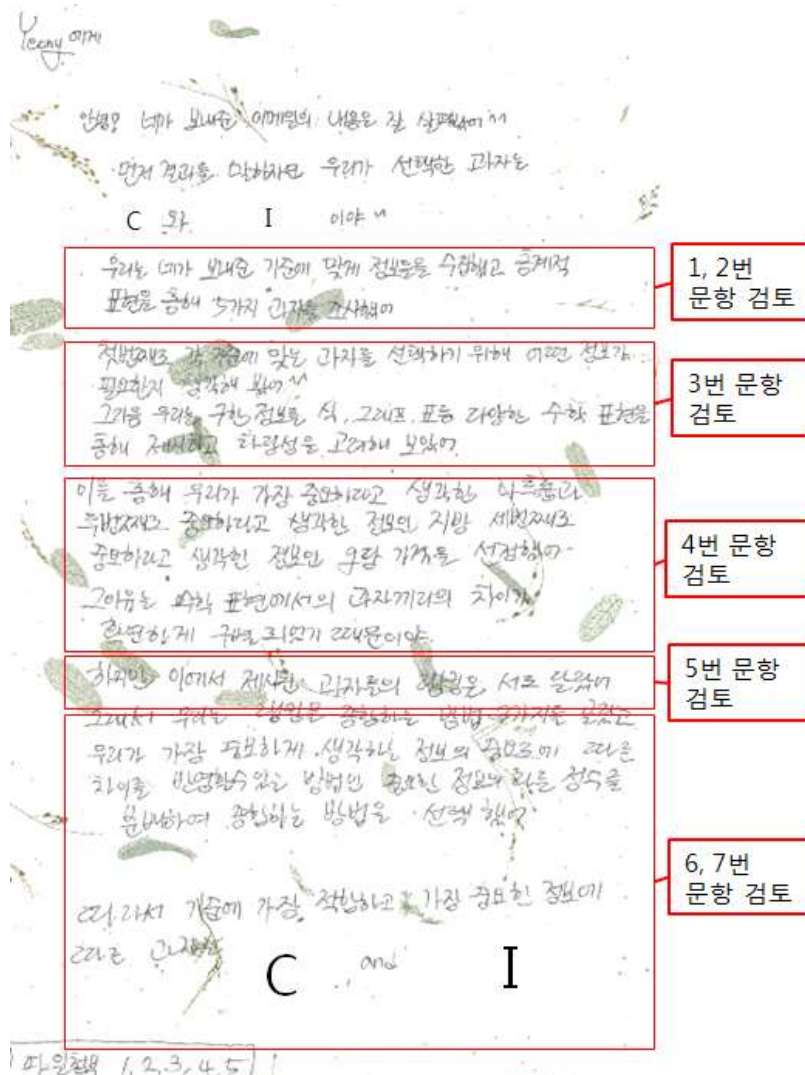 Yeony에게
안녕? 네가 보내준 이메일의 내용은 잘 살펴봤어^^
먼저 결과를 말하자면 우리가 선택한 과자는
C 와 I 이야^^
우리는 네가 보내준 기준에 맞게 정보들을 수집했고 통계적
표현을 통해 5가지 과자를 조사했어
1, 2번
문항 검토
첫번째로 각 기준에 맞는 과자를 선택하기 위해 어떤 정보가
필요한지 생각해 봤어^^
그다음 우리는 구한 정보를 식, 그래프, 표등 다양한 수학 표현을
통해 하고 타당성을 고려해 보았어
3번 문항
검토
이를 통해 우리가 가장 중요하다고 생각한
두번째로 중요하다고 생각한 정보인 지방 세번째로
중요하다고 생각한 정보인 을 선정했어
그이유는 수학 표현에서의 과자끼리의 차이가
확연하게 구별되었기 때문이야
4번 문항
검토
하지만 이에서 제시된 과자들의 랭킹은 서로 달랐어
5번 문항
검토
그래서 우리는 랭킹을 종합하는 방법 을
우리가 가장 중요하게 생각하는 정보의 중요도에 따른
차이를 반영할수있는 방법인 중요한 정보의 점수를
분배하여 종합하는 방법을 선택 했어
따라서 기준에 가장 적합하고 가장 중요한 정보에
따른 과자는
C and I
6, 7번
문항 검토
파일첨부 1, 2, 3, 4, 5